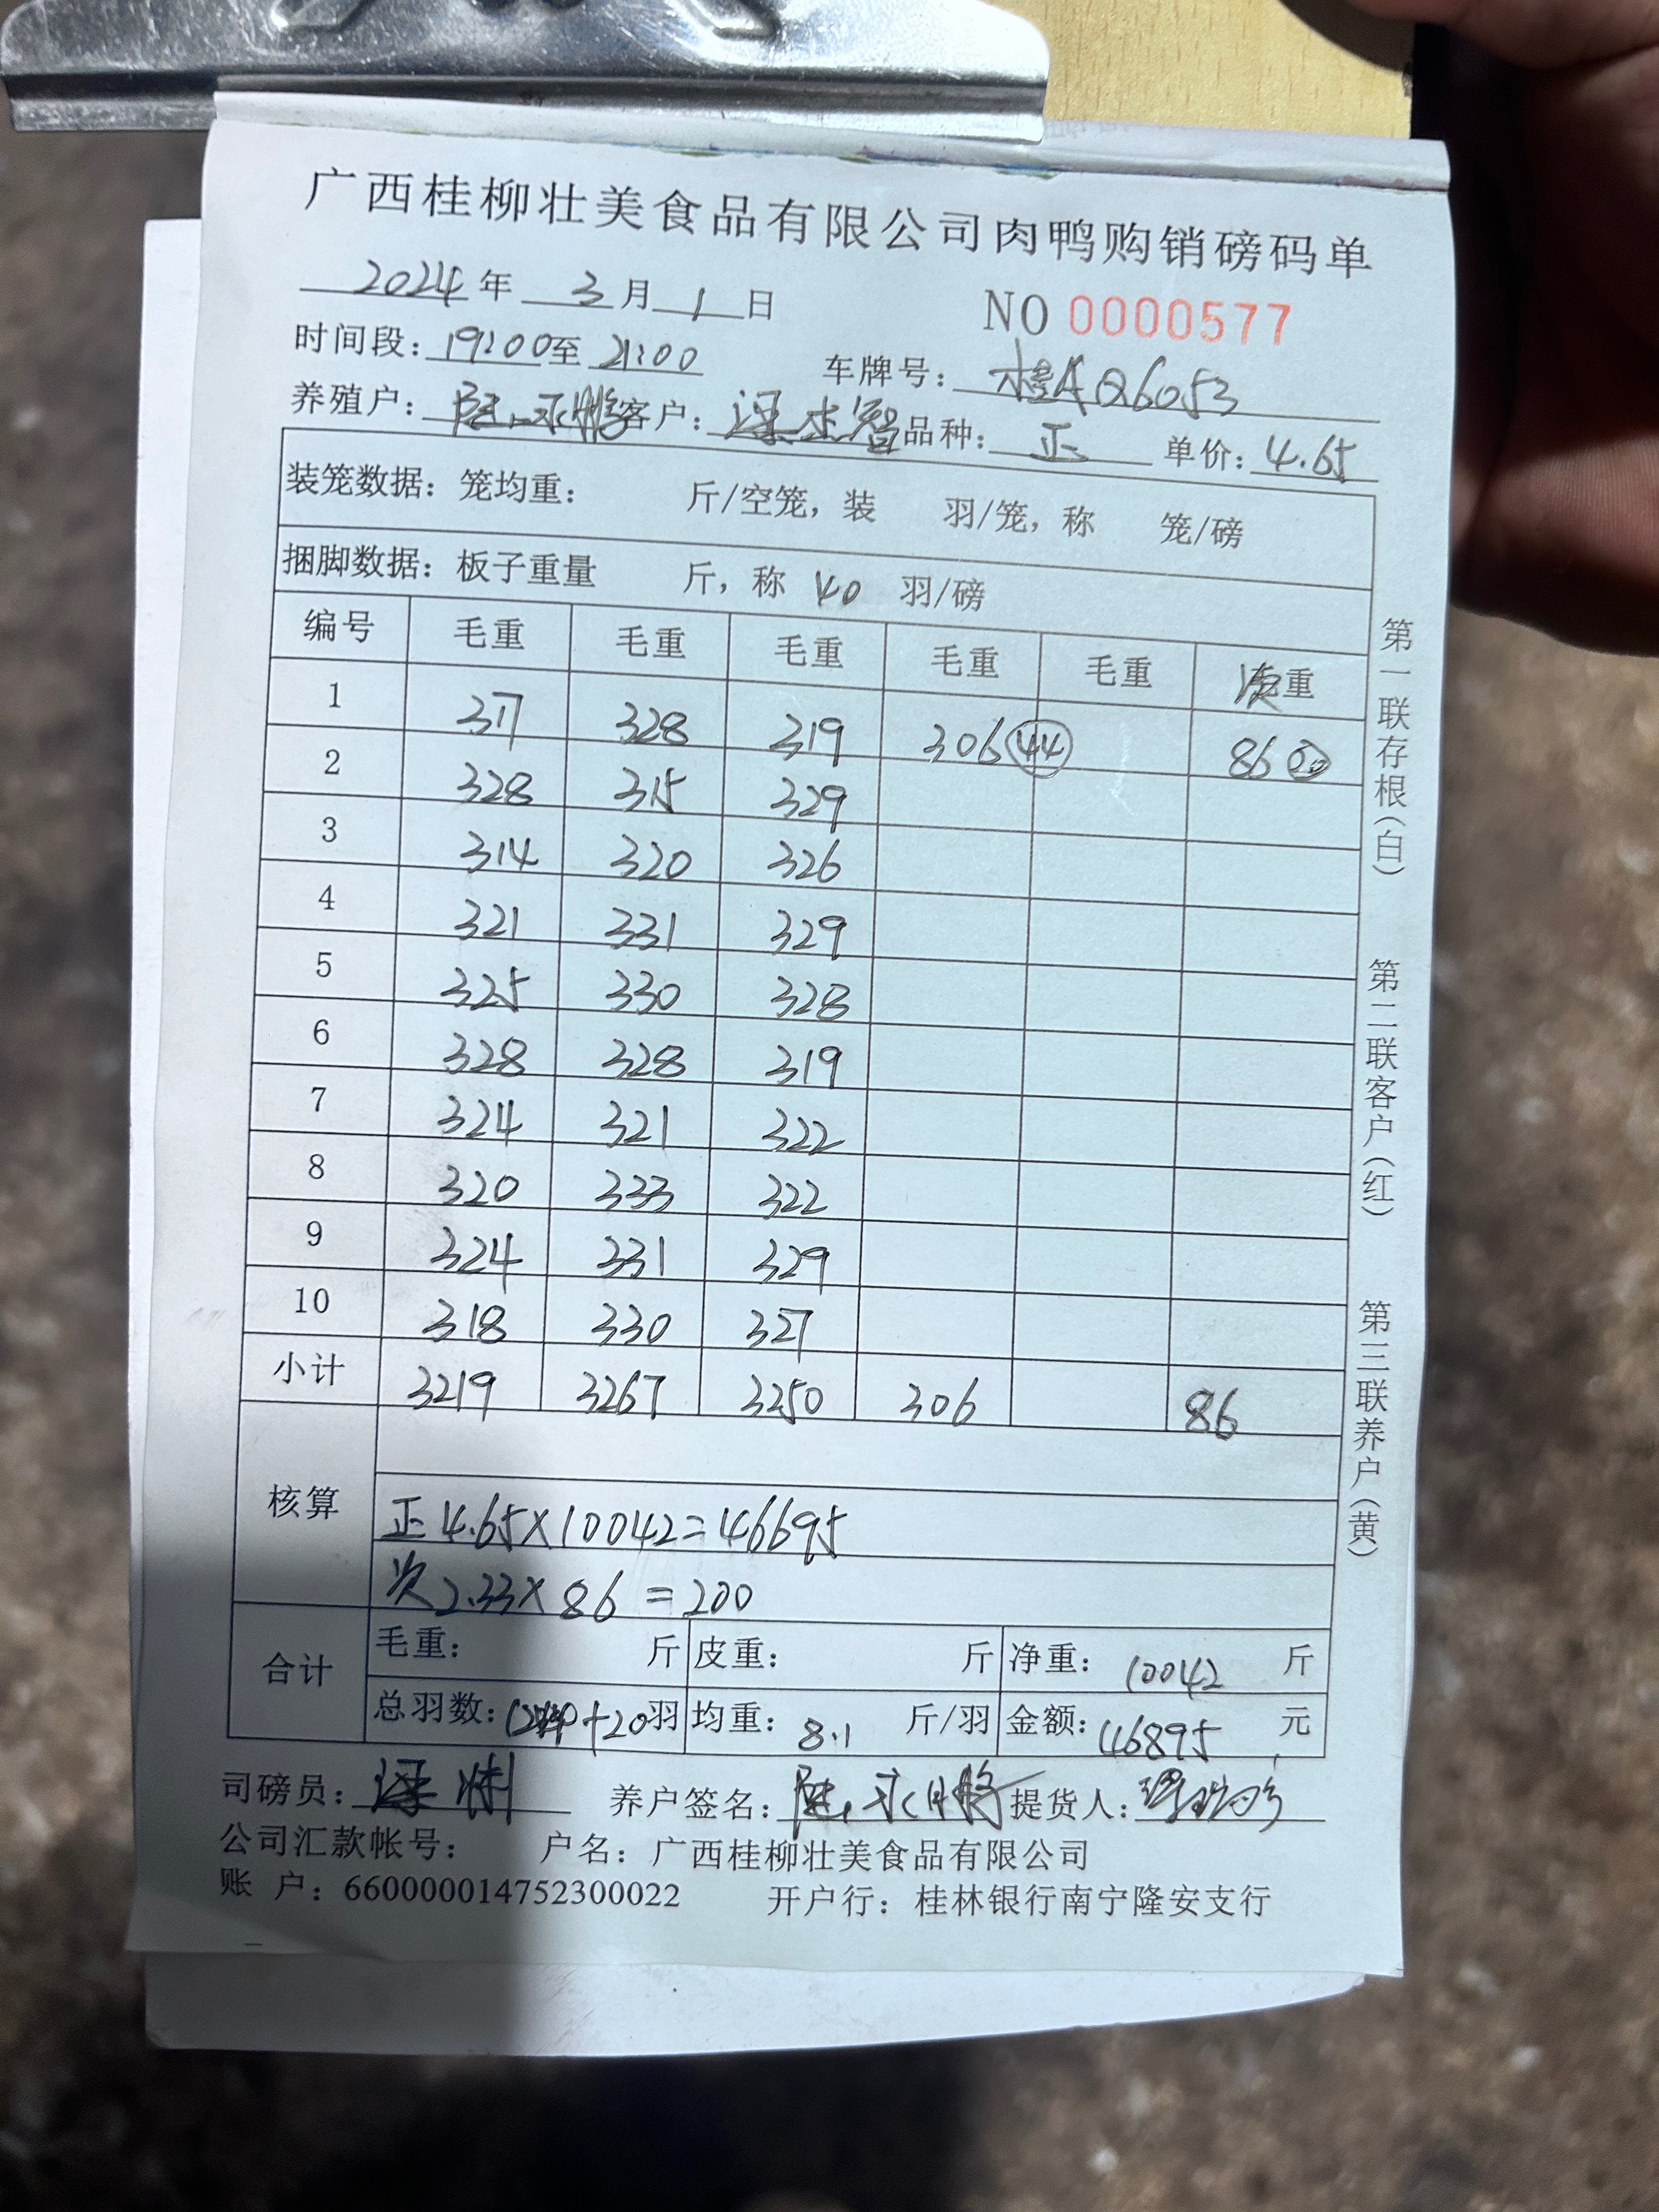 广西桂柳壮美食品有限公司肉鸭购销磅码单
2024 年 3 月 1 日 NO 0000577
时间段: 19:00 至 21:00 车牌号: 桂A Q6053
养殖户: 陆永鹏 客户: 梁杰智 品种: 正 单价: 4.65
装笼数据: 笼均重: 斤/空笼, 装 羽/笼, 称 笼/磅
捆脚数据: 板子重量 斤, 称 40 羽/磅
编号 毛重 毛重 毛重 毛重 毛重 重
1 317 328 319 306 44 86 20
2 328 315 329
3 314 320 326
4 321 331 329
5 325 330 328
6 328 328 319
7 324 321 322
8 320 333 322
9 324 331 329
10 318 330 327
小计 3219 3267 3250 306 86
核算
正 4.65×10042=46695
次 2.33×86=200
合计 毛重: 斤 皮重: 斤 净重: 10042 斤
总羽数: +20 羽 均重: 8.1 斤/羽 金额: 46895 元
司磅员: 梁 养户签名: 陆永鹏 提货人:
公司汇款帐号: 户名: 广西桂柳壮美食品有限公司
账 户: 660000014752300022 开户行: 桂林银行南宁隆安支行
第一联存根(白) 第二联客户(红) 第三联养户(黄)